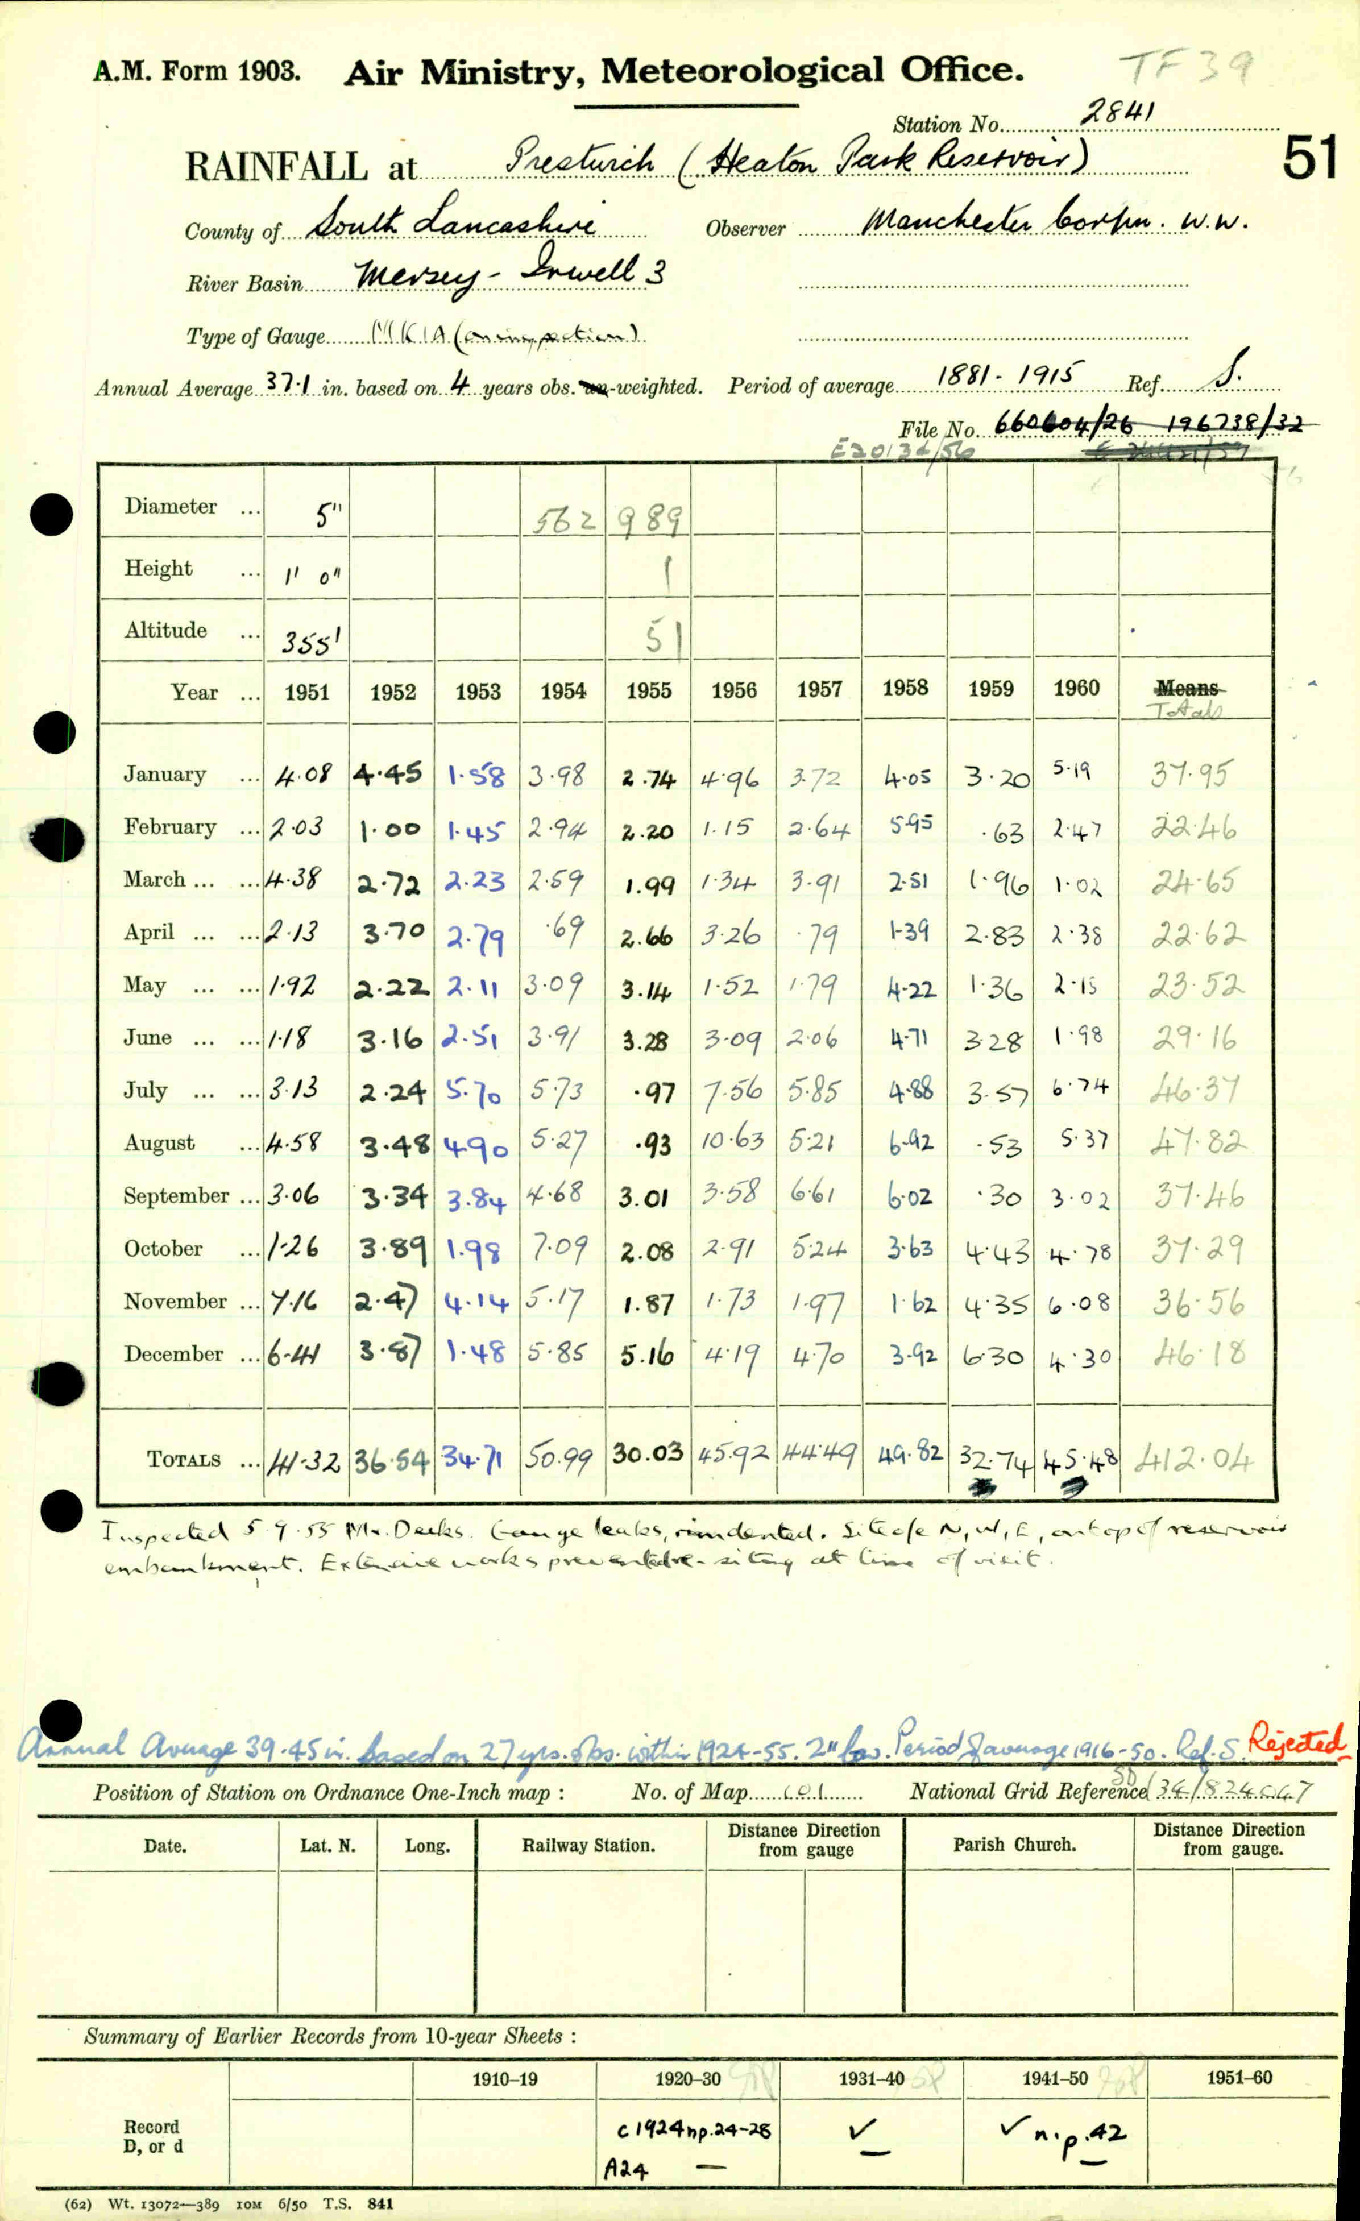 A.M. Form 1903. Air Ministry, Meteorological Office. TF 39
Station No. 2841
RAINFALL at Prestwich (Heaton Park Reservoir) 51
County of South Lancashire Observer Manchester Corpn. W.W.
River Basin Mersey - Irwell 3
Type of Gauge MK IA (on inspection)
Annual Average 37.1 in. based on 4 years obs. un-weighted. Period of average 1881 - 1915 Ref. S.
File No. 660604/26 196738/32
Diameter ... 5" 562 989
Height ... 1' 0" 1
Altitude ... 355' 51
Year ... 1951 1952 1953 1954 1955 1956 1957 1958 1959 1960 Means
Totals
January ... 4.08 4.45 1.58 3.98 2.74 4.96 3.72 4.05 3.20 5.19 37.95
February ... 2.03 1.00 1.45 2.94 2.20 1.15 2.64 5.95 .63 2.47 22.46
March ... ... 4.38 2.72 2.23 2.59 1.99 1.34 3.91 2.51 1.96 1.02 24.65
April ... ... 2.13 3.70 2.79 .69 2.66 3.26 .79 1.39 2.83 2.38 22.62
May ... ... 1.92 2.22 2.11 3.09 3.14 1.52 1.79 4.22 1.36 2.15 23.52
June ... ... 1.18 3.16 2.51 3.91 3.28 3.09 2.06 4.71 3.28 1.98 29.16
July ... ... 3.13 2.24 5.70 5.73 .97 7.56 5.85 4.88 3.57 6.74 46.37
August ... 4.58 3.48 4.90 5.27 .93 10.63 5.21 6.92 .53 5.37 47.82
September ... 3.06 3.34 3.84 4.68 3.01 3.58 6.61 6.02 .30 3.02 37.46
October ... 1.26 3.89 1.98 7.09 2.08 2.91 5.24 3.63 4.43 4.78 37.29
November ... 7.16 2.47 4.14 5.17 1.87 1.73 1.97 1.62 4.35 6.08 36.56
December ... 6.41 3.87 1.48 5.85 5.16 4.19 4.70 3.92 6.30 4.30 46.18
TOTALS ... 41.32 36.54 34.71 50.99 30.03 45.92 44.49 49.82 32.74 45.48 412.04
Inspected 5.9.55 Mr. Deeks. Gauge leaks, rim dented. Site o/e N, W, E, on top of reservoir
embankment. Extensive works prevented re-siting at time of visit.
Annual Average 39.45 in. based on 27 yrs. obs. within 1924-55. Period of average 1916-50. Ref. S. Rejected
Position of Station on Ordnance One-Inch map : No. of Map 101 National Grid Reference SD/34/824047
Date. Lat. N. Long. Railway Station. Distance Direction from gauge Parish Church. Distance Direction from gauge.
Summary of Earlier Records from 10-year Sheets :
1910–19 1920–30 1931–40 1941–50 1951–60
Record
D, or d
c1924 n.p. 24-28 ✓ ✓ n.p. 42
A24 —
(62) Wt. 13072—389 10M 6/50 T.S. 841